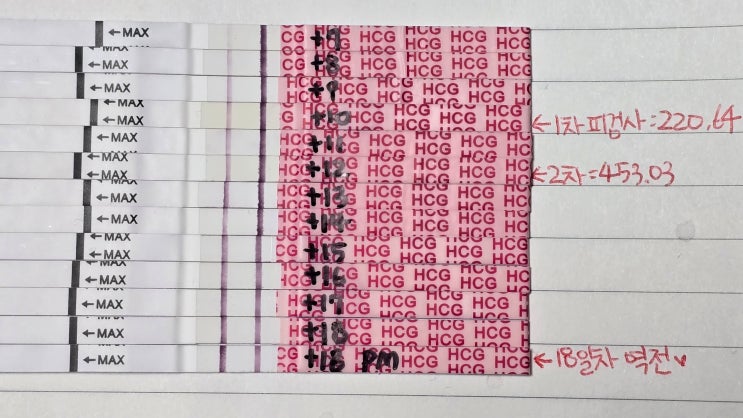 ←MAX CG HCG HCG HCG
←MAX +8 HCG HCG HCG
←MAX +9 HCG HCG HCG
←MAX +10 HCG HCG HCG ←1차 피검사:220.64
←MAX +11 HCG HCG HCG
←MAX +12 HCG HCG HCG ←2차:453.03
←MAX +13 HCG HCG HCG
←MAX +14 HCG HCG HCG
←MAX +15 HCG HCG HCG
←MAX +16 HCG HCG HCG
←MAX +17 HCG HCG HCG
←MAX +18 HCG HCG HCG
←MAX +18 PM HCG HCG HCG ←18일차 역전✓